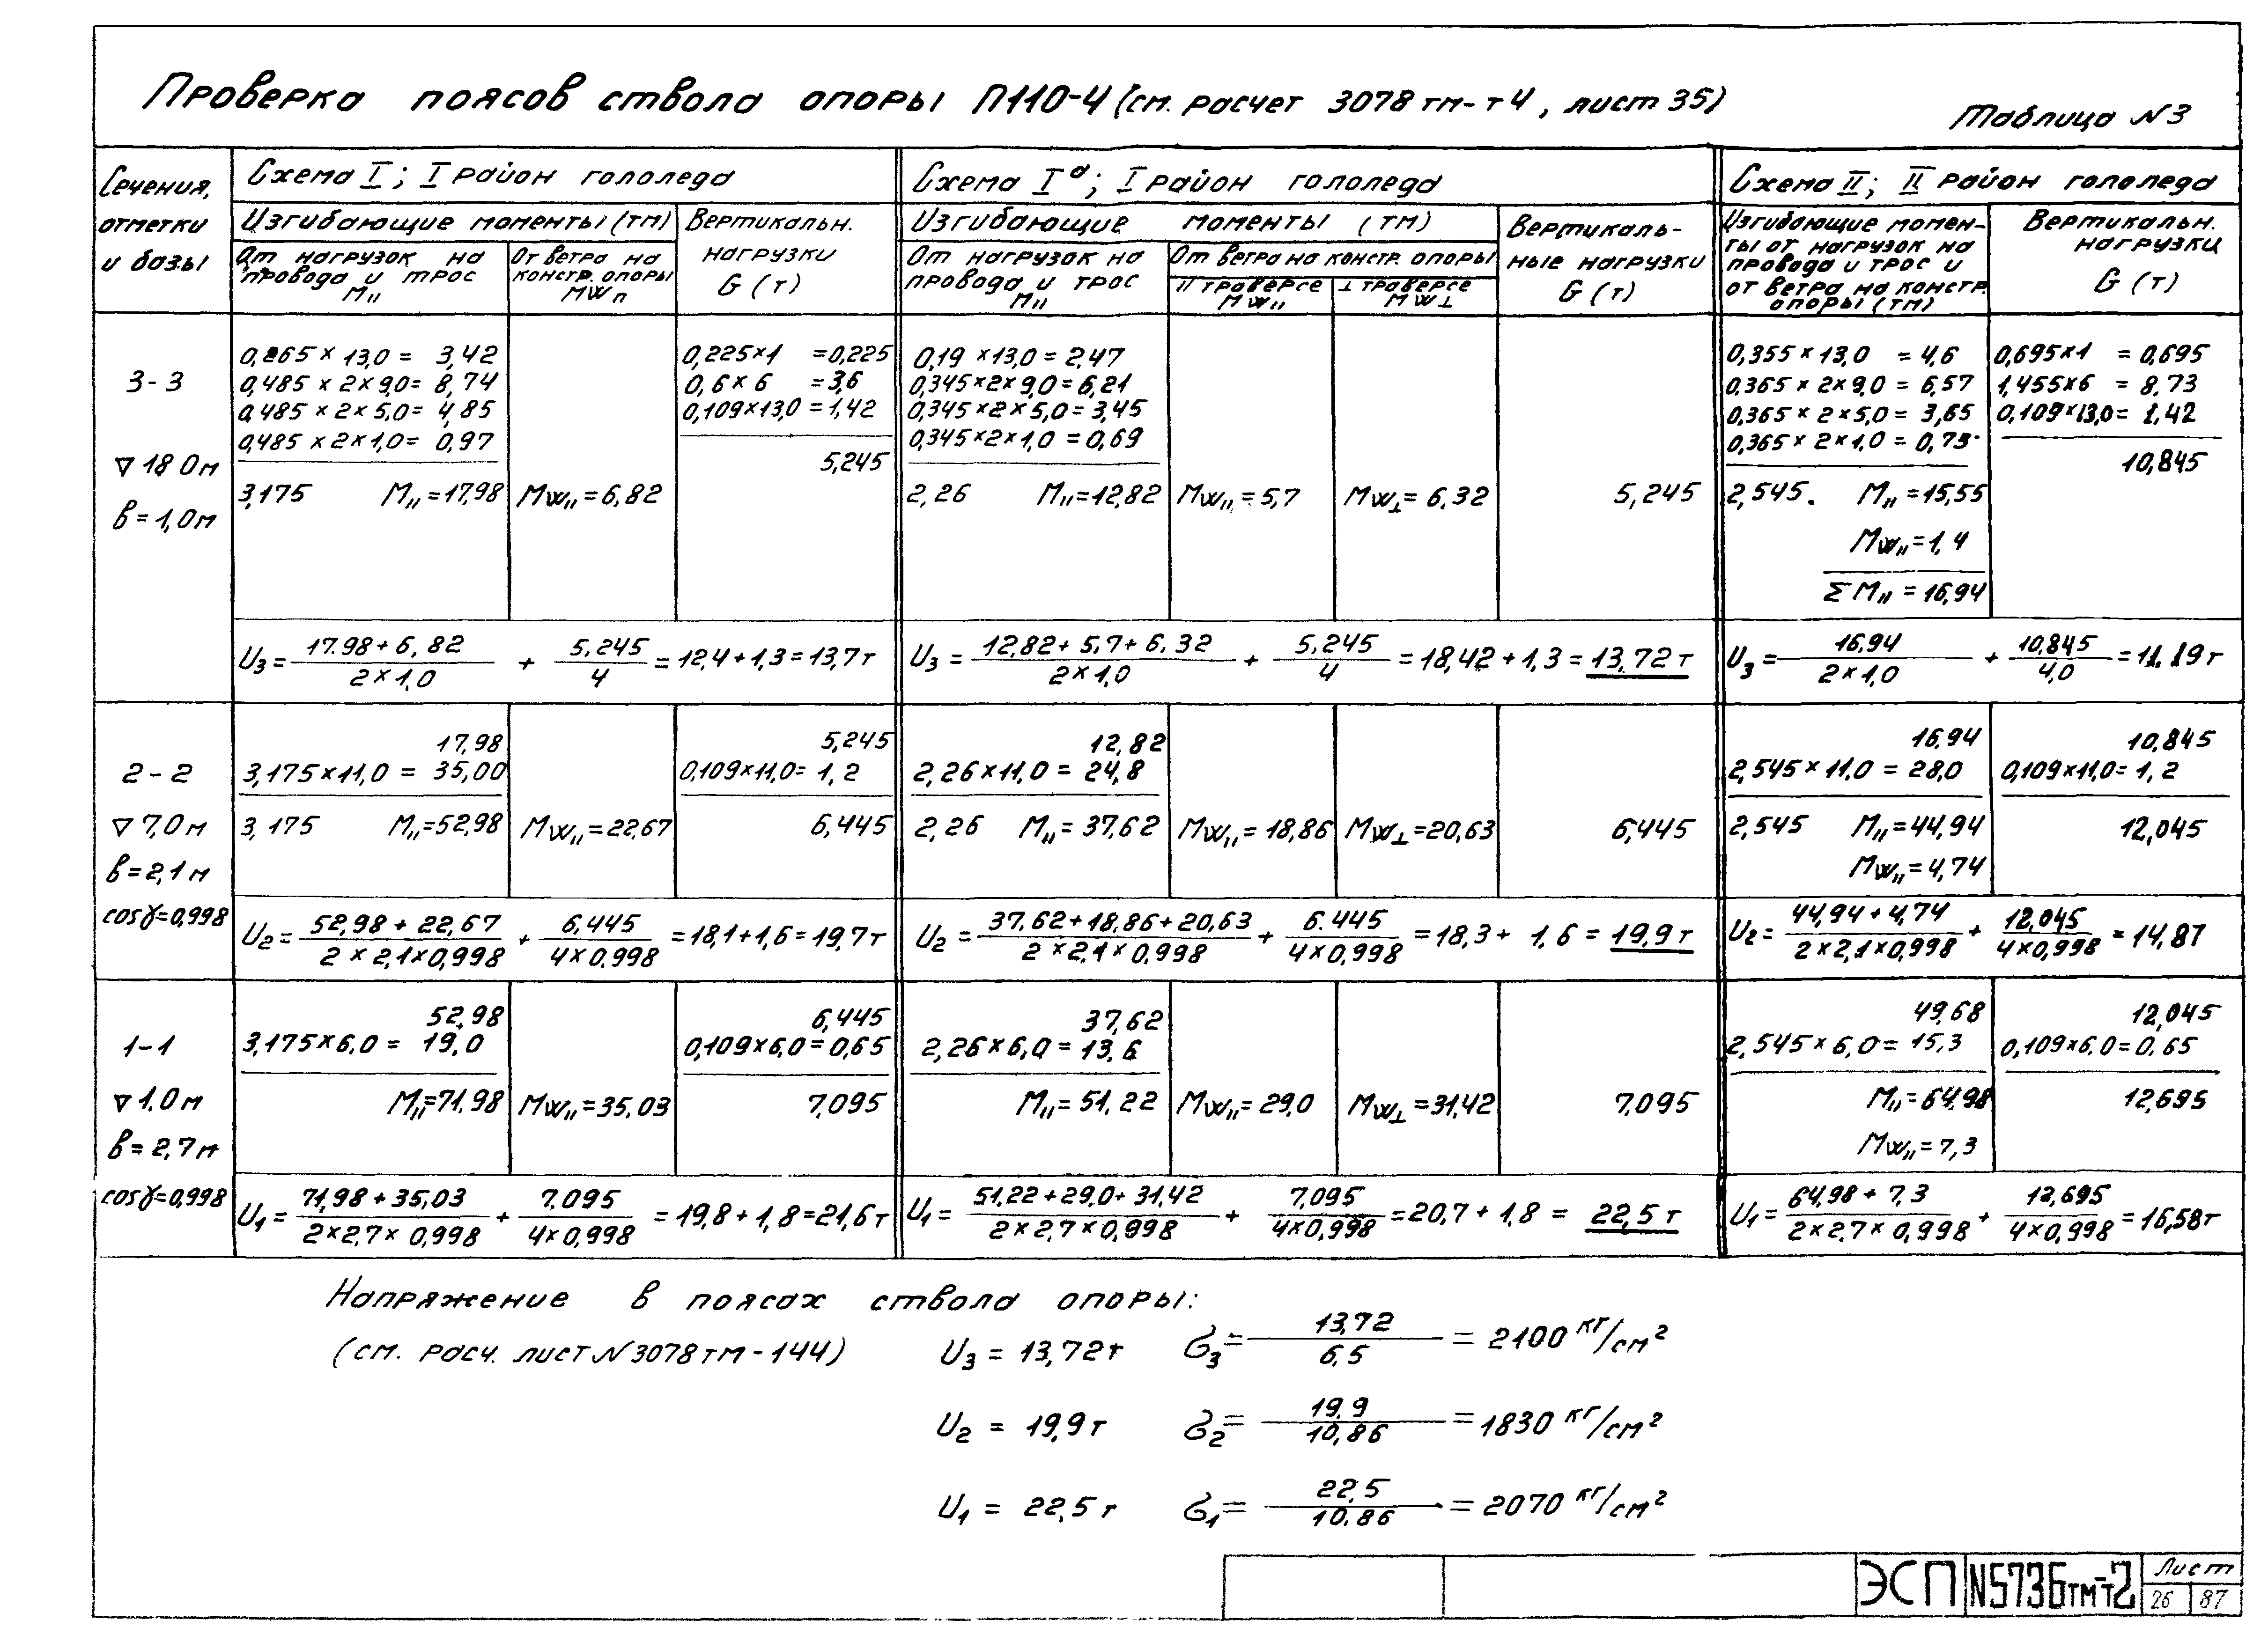 Проверка поясов ствола опоры П110-4 (см. расчет 3078тм-т4, лист 35)
Таблица N3
Сечения, отметки и базы
Схема I; I район гололеда
Изгибающие моменты (тм)
От нагрузок на провода и трос M||
От ветра на констр. опоры MWп
Вертикальн. нагрузки G (т)
Схема Iа; I район гололеда
Изгибающие моменты (тм)
От нагрузок на провода и трос M||
От ветра на констр. опоры
|| траверсе MW||
⊥ траверсе MW⊥
Вертикаль-
ные нагрузки
G (т)
Схема II; II район гололеда
Изгибающие момен-
ты от нагрузок на
провода и трос и
от ветра на констр.
опоры (тм)
Вертикальн.
нагрузки
G (т)
3-3
▽ 18.0м
в=1,0м
0,265×13,0= 3,42
0,485×2×9,0= 8,74
0,485×2×5,0= 4,85
0,485×2×1,0= 0,97
3,175 M||=17,98
MW||=6,82
0,225×1 =0,225
0,6×6 =3,6
0,109×13,0=1,42
5,245
0,19×13,0=2,47
0,345×2×9,0=6,21
0,345×2×5,0=3,45
0,345×2×1,0=0,69
2,26 M||=12,82
MW||=5,7
MW⊥=6,32
5,245
0,355×13,0 =4,6
0,365×2×9,0=6,57
0,365×2×5,0=3,65
0,365×2×1,0=0,73
2,545. M||=15,55
MW||=1,4
ΣM||=16,94
0,695×1 =0,695
1,455×6 =8,73
0,109×13,0=1,42
10,845
U3= 17.98+6,82 / 2×1,0 + 5,245 / 4 =12,4+1,3=13,7т
U3= 12,82+5,7+6,32 / 2×1,0 + 5,245 / 4 =18,42+1,3=13,72т
U3= 16,94 / 2×1,0 + 10,845 / 4,0 =11.19т
2-2
▽ 7,0м
в=2,1м
cosγ=0,998
17,98
3,175×11,0 = 35,00
3,175 M||=52,98
MW||=22,67
5,245
0,109×11,0=1,2
6,445
12,82
2,26×11,0= 24,8
2,26 M||=37,62
MW||=18,86
MW⊥=20,63
6,445
16,94
2,545×11,0=28,0
2,545 M||=44,94
MW||=4,74
10,845
0,109×11,0=1,2
12,045
U2= 52,98+22,67 / 2×2,1×0,998 + 6,445 / 4×0,998 =18,1+1,6=19,7т
U2= 37,62+18,86+20,63 / 2×2,1×0,998 + 6.445 / 4×0,998 =18,3+1,6=19,9т
U2= 44,94+4,74 / 2×2,1×0,998 + 12,045 / 4×0,998 =14,87
1-1
▽ 1.0м
в=2,7м
cosγ=0,998
52,98
3,175×6,0= 19,0
M||=71.98
MW||=35,03
6,445
0,109×6,0=0,65
7.095
37,62
2,26×6,0=13,6
M||=51,22
MW||=29,0
MW⊥=31,42
7.095
49,68
2,545×6,0=15,3
M||=64,98
MW||=7,3
12,045
0,109×6,0=0,65
12,695
U1= 71,98+35,03 / 2×2,7×0,998 + 7.095 / 4×0,998 =19,8+1,8=21,6т
U1= 51.22+29,0+31,42 / 2×2,7×0,998 + 7,095 / 4×0,998 =20,7+1,8= 22,5т
U1= 64,98+7,3 / 2×2,7×0,998 + 12,695 / 4×0,998 =16,58т
Напряжение в поясах ствола опоры:
(см. расч. лист N3078тм-144)
U3=13,72т σ3= 13,72 / 6,5 =2100 кг/см²
U2=19,9т σ2= 19,9 / 10,86 =1830 кг/см²
U1= 22,5т σ1= 22,5 / 10.86 =2070 кг/см²
ЭСП N5736тм-т2 Лист
26 87